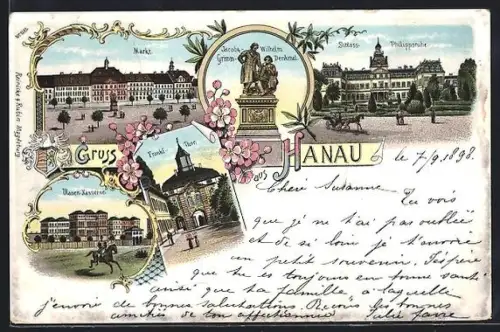 Markt.
Jacob u. Wilhelm
Grimm Denkmal.
Schloss Philippsruhe
Gruss
aus HANAU
Frankf. Thor.
Ulanen-Kaserne
Reinicke & Rubin Magdeburg
le 7/9. 1898.
Chère Susanne
Tu vois
que je ne t'ai pas oubliée
et de si loin je t'envoie
un petit souvenir. J'espère
que tu es toujours en bonne santé
ainsi que ta famille à laquelle
j'envoie de bonnes salutations. Reçois les bonnes
amitiés de ton affectionnée